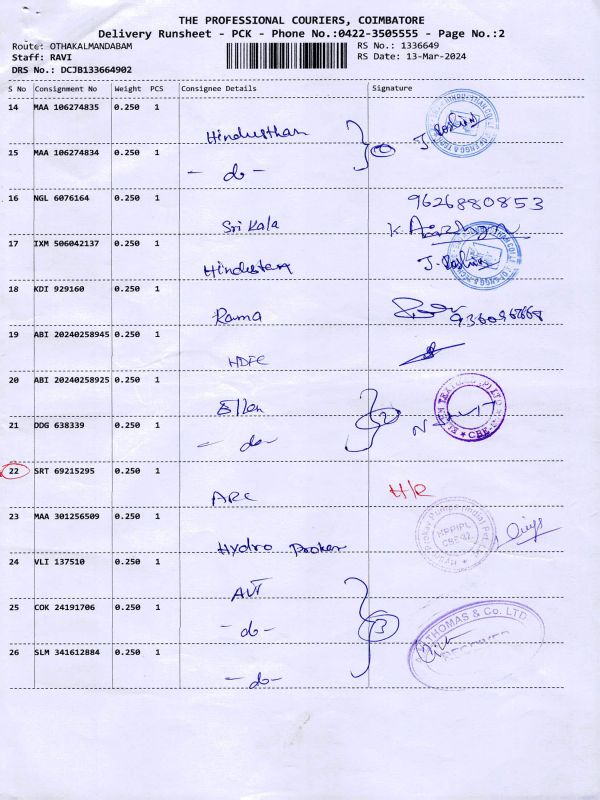 THE PROFESSIONAL COURIERS, COIMBATORE
Delivery Runsheet - PCK - Phone No.:0422-3505555 - Page No.:2
Route: OTHAKALMANDABAM RS No.: 1336649
Staff: RAVI RS Date: 13-Mar-2024
DRS No.: DCJB133664902
S No Consignment No Weight PCS Consignee Details Signature
14 MAA 106274835 0.250 1 Hindusthan J. Roshini
15 MAA 106274834 0.250 1 - do - 2
16 NGL 6076164 0.250 1 Sri Kala 9626880853
17 IXM 506042137 0.250 1 Hindustan J. Roshini
18 KDI 929160 0.250 1 Rama
19 ABI 20240258945 0.250 1 HDFC
20 ABI 20240258925 0.250 1 Ellen
21 DDG 638339 0.250 1 - do - 2
22 SRT 69215295 0.250 1 ARC H/R
23 MAA 301256509 0.250 1 Hydro Proker
24 VLI 137510 0.250 1 AVT
25 COK 24191706 0.250 1 - do - 3
26 SLM 341612884 0.250 1 - do - THOMAS & Co. LTD.
RECEIVED